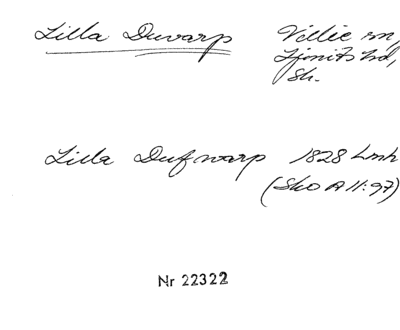 Lilla Duvarp Villie sn,
Ljunits hd,
Sk.
Lilla Dufwarp 1828 Lmk
(Sko A 11:97)
Nr 22322